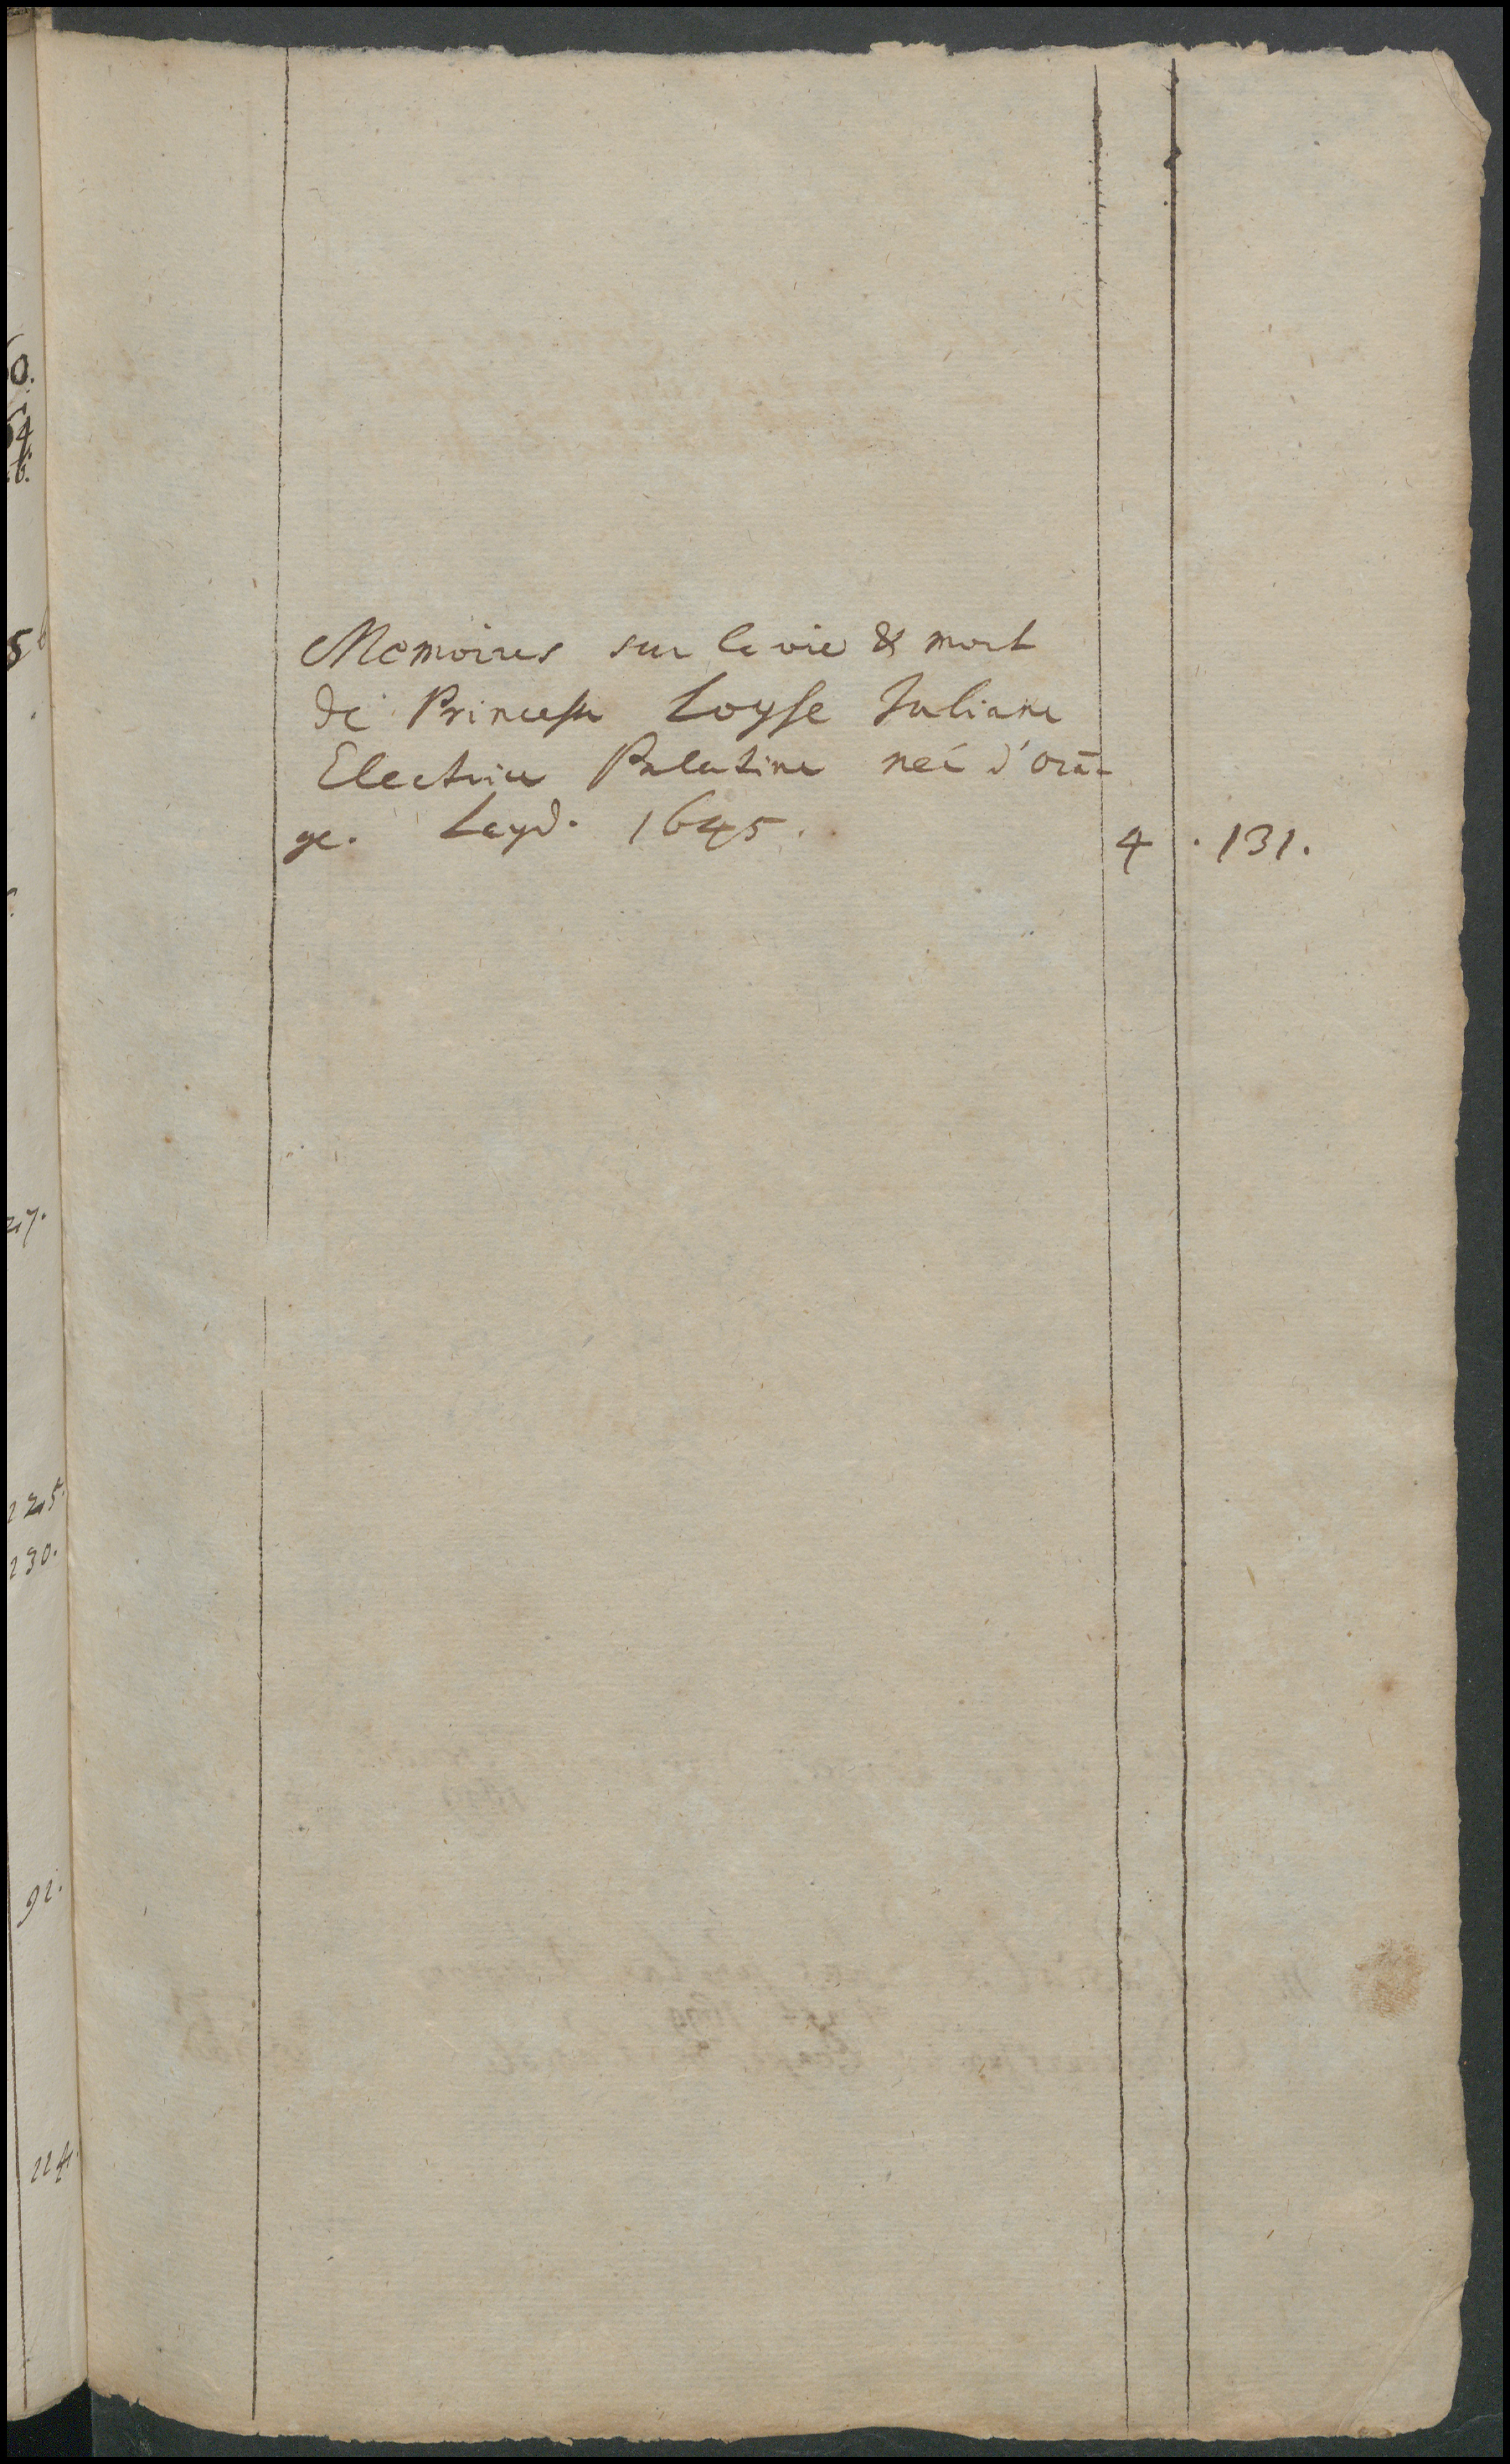 Memoires sur la vie & mort
de Princesse Loyse Juliane
Electrice Palatine neé d'orā-
ge. Leyd. 1645. 4 . 131.
5
27.
225.
230.
91.
224.